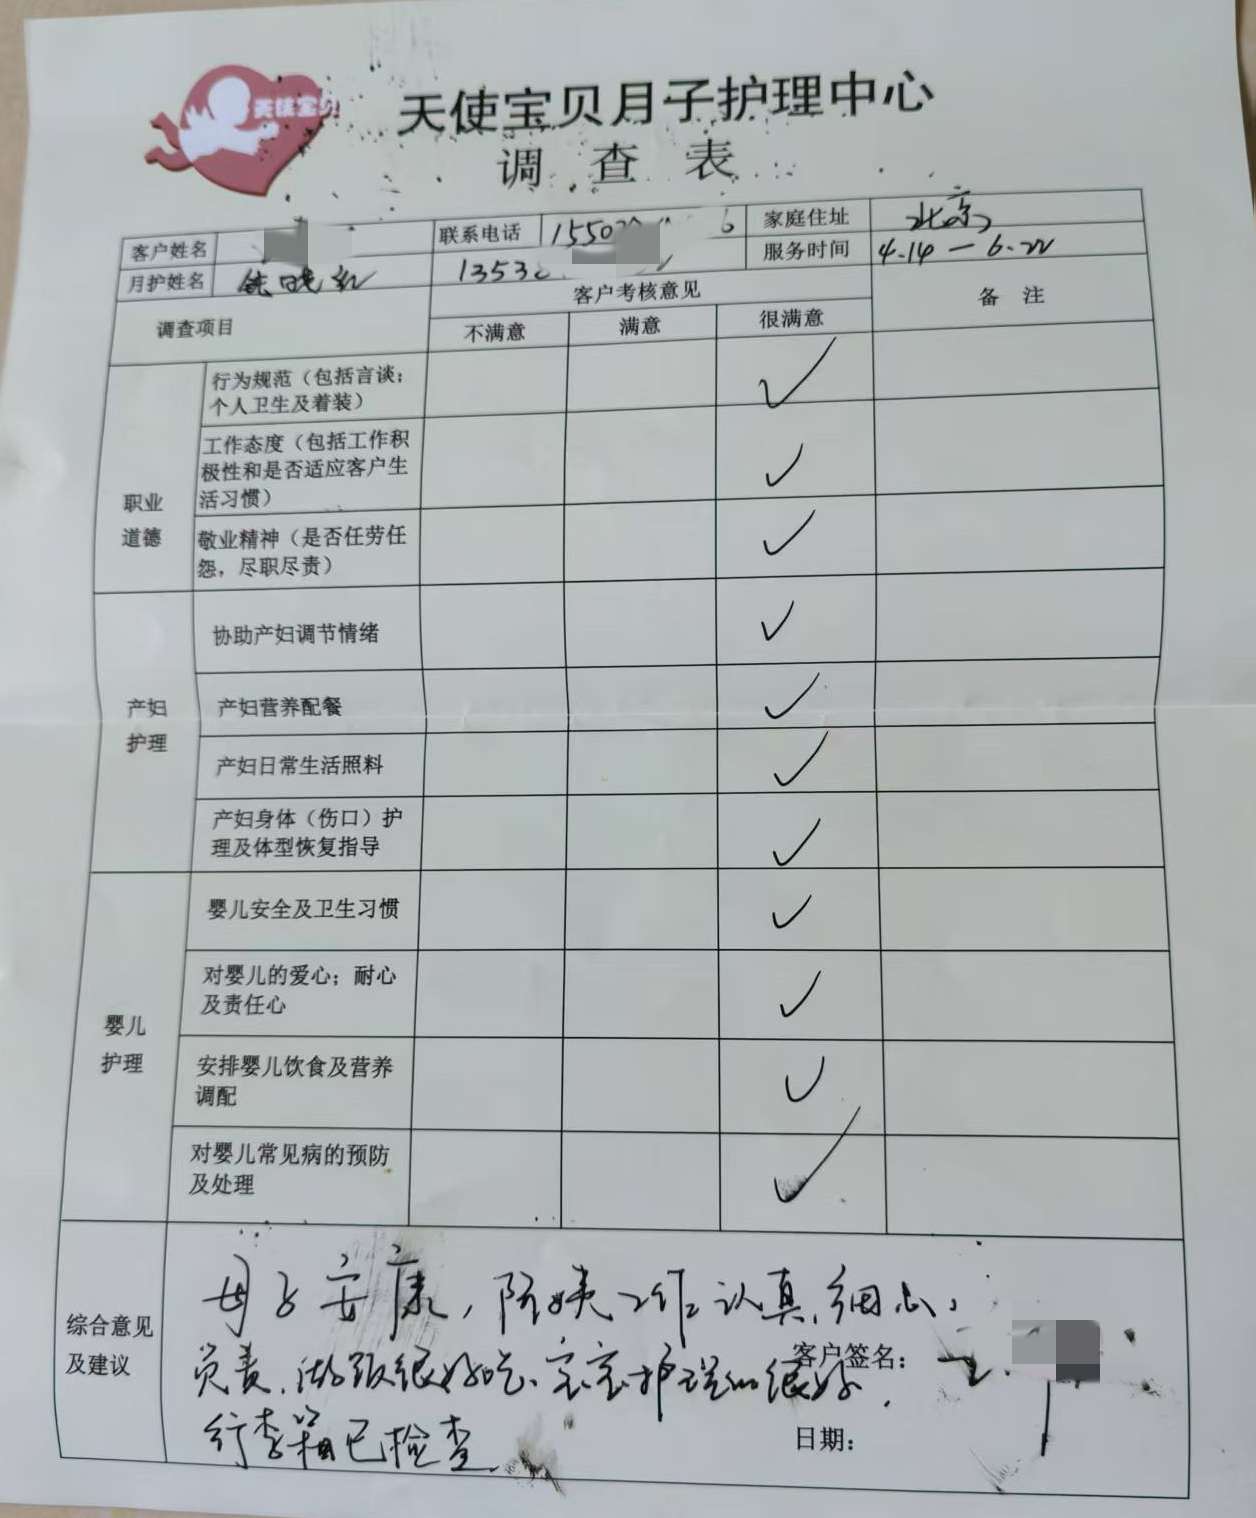 天使宝贝
天使宝贝月子护理中心
调 查 表
客户姓名 联系电话 家庭住址 北京
月护姓名 服务时间 4.14-6.22
调查项目 客户考核意见 备 注
不满意 满意 很满意
职业
道德
行为规范（包括言谈；
个人卫生及着装） ✓
工作态度（包括工作积
极性和是否适应客户生
活习惯） ✓
敬业精神（是否任劳任
怨，尽职尽责） ✓
产妇
护理
协助产妇调节情绪 ✓
产妇营养配餐 ✓
产妇日常生活照料 ✓
产妇身体（伤口）护
理及体型恢复指导 ✓
婴儿
护理
婴儿安全及卫生习惯 ✓
对婴儿的爱心；耐心
及责任心 ✓
安排婴儿饮食及营养
调配 ✓
对婴儿常见病的预防
及处理 ✓
综合意见
及建议
母子安康，阿姨工作认真，细心，
负责，做饭很好吃、宝宝护理的很好，
行李箱已检查
客户签名：
日期：